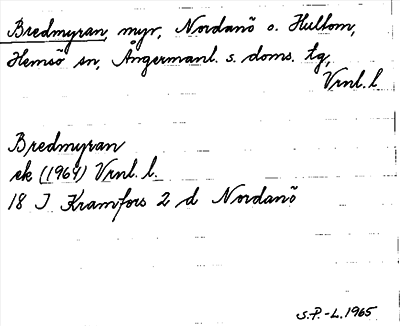 Bredmyran, myr, Nordanö o. Hultom,
Hemsö sn, Ångermanl. s. doms. tg,
Vrnl. l
Bredmyran
ek (1964) Vrnl. l.
18 J Kramfors 2 d Nordanö
S.P.-L. 1965